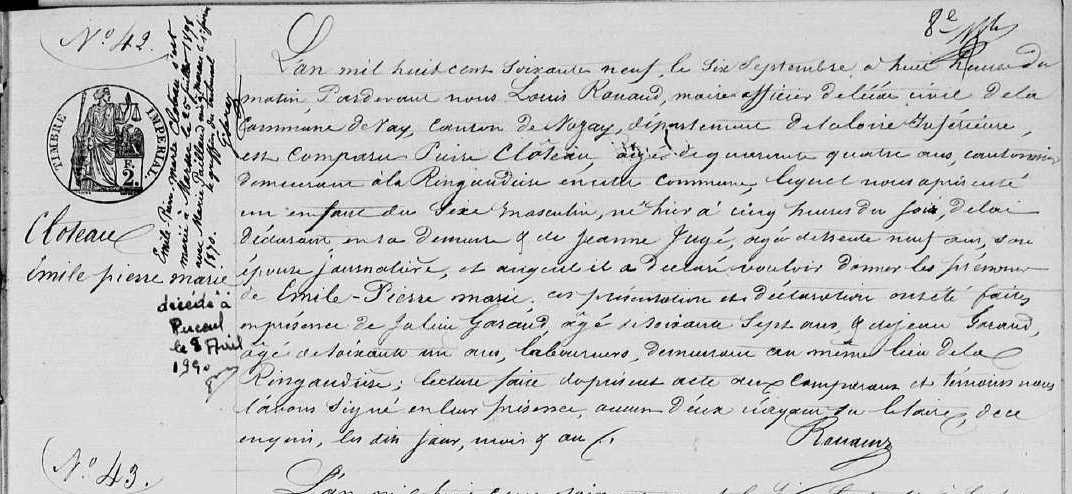 8e
N° 42.
TIMBRE IMPERIAL
F.
2.
Cloteau
Emile pierre marie
Emile Pierre marie Cloteau s'est
marié à le 20 juillet 1898
avec Marie Paillard
le greffier du tribunal
décédé à
Puceul
le 8 Avril
19
L'an mil huit cent soixante neuf, le six Septembre a huit heures du
matin, Pardevant nous Louis Rouaud, maire officier de l'état civil de la
Commune de Nay, canton de Nozay, département de la loire Inférieure,
est comparu Pierre Clôteau, agé de quarante quatre ans, cantonnier
demeurant à la Ringaudiere en cette commune, lequel nous a présenté
un enfant du Sexe masculin, né hier à cinq heures du soir, de lui
déclarant en sa demeure & de Jeanne Jugé, agée de trente neuf ans, son
épouse journalière, et auquel il a déclaré vouloir donner les prénoms
de Emile-Pierre marie. ces présentation et déclaration ont été faites
en présence de Julien Garaud, âgé de soixante Sept ans, & de jean Garaud,
âgé de soixante un ans, laboureurs, demeurant au même lieu de la
Ringaudiere; lecture faite du présent acte aux comparant et témoins nous
l'avons signé en leur présence, aucun d'eux n'ayant su le faire, de ce
enquis, les dits jour, mois & an
Rouaud
N° 43.
L'an mil huit cent soixante